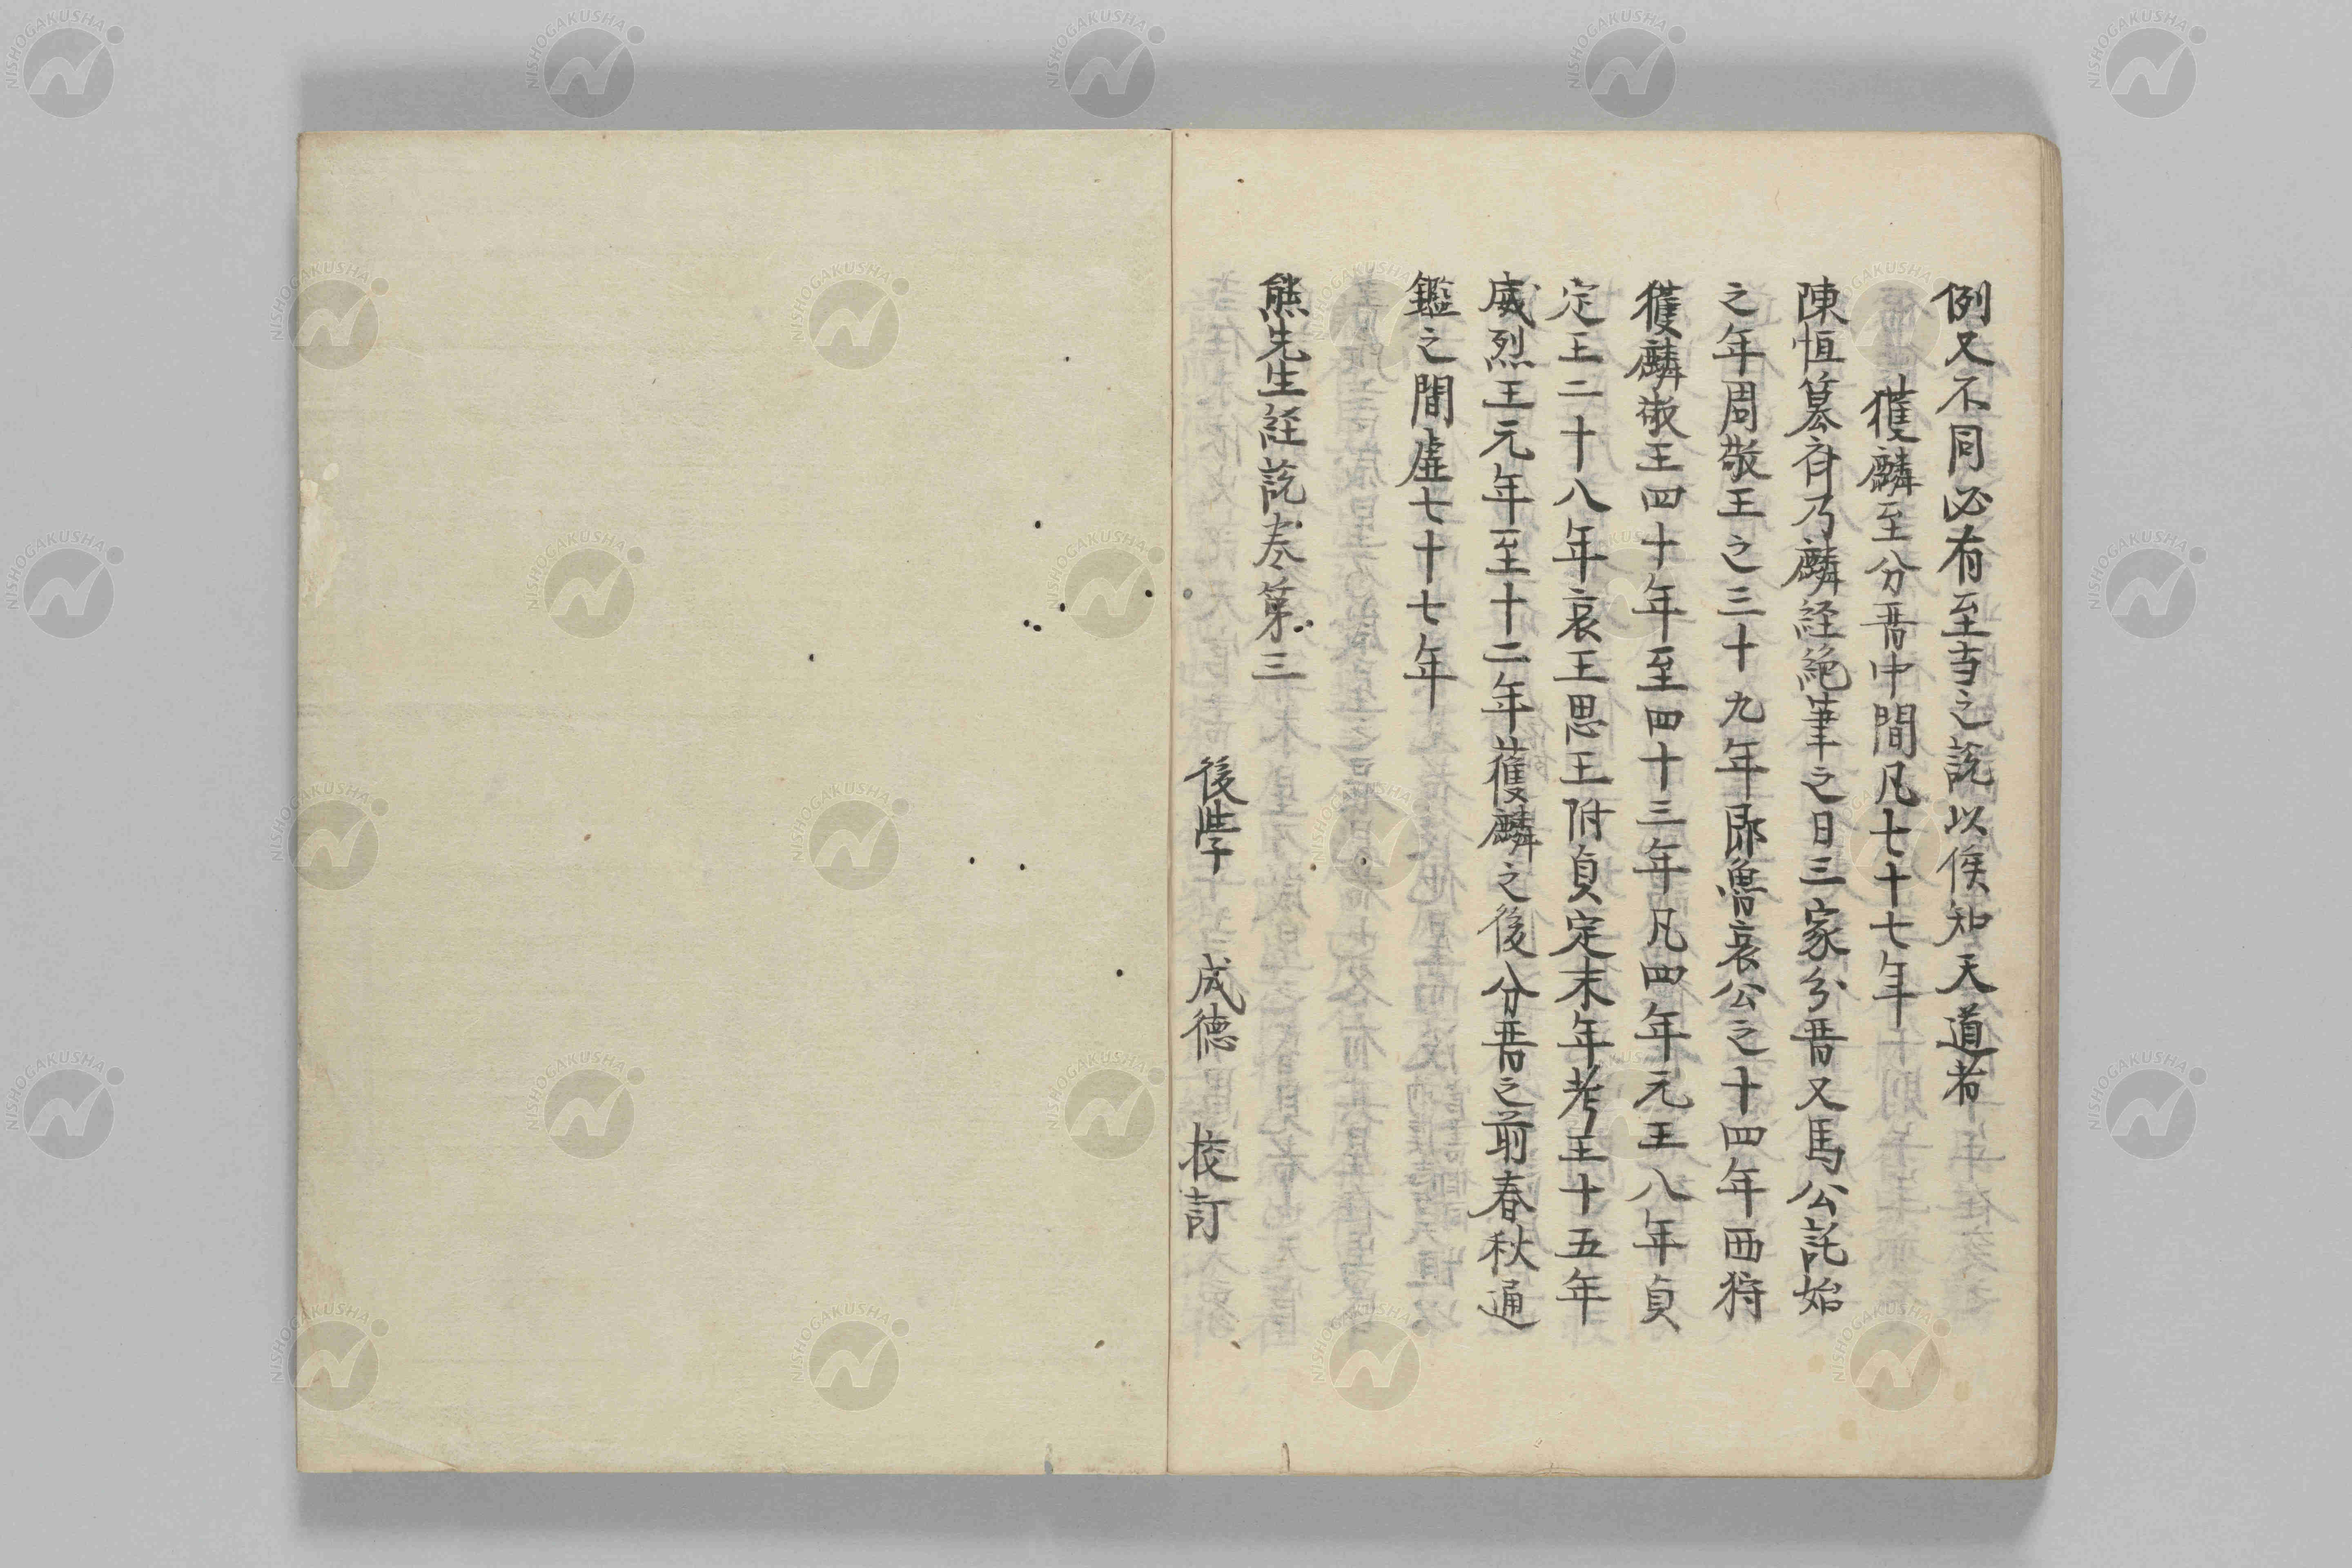 例又不同必有至当之說以俟知天道者
獲麟至分晋中間凡七十七年
陳恒簒斉乃麟経絶筆之日三家分晋又馬公託始
之年周敬王之三十九年即魯哀公之十四年西狩
獲麟敬王四十年至四十三年凡四年元王八年貞
定王二十八年哀王思王附貞定末年考王十五年
威烈王元年至十二年獲麟之後分晋之前春秋通
鑑之間虚七十七年
熊先生経説巻第三
後学 成徳 挍訂
NISHOGAKUSHA